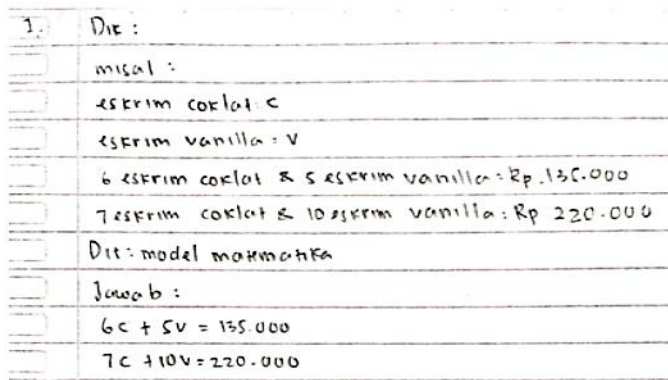 1. Dik :
misal :
eskrim coklat : c
eskrim vanilla : v
6 eskrim coklat & 5 eskrim vanilla : Rp.135.000
7 eskrim coklat & 10 eskrim vanilla : Rp 220.000
Dit : model matematika
Jawab :
6c + 5v = 135.000
7c + 10v = 220.000